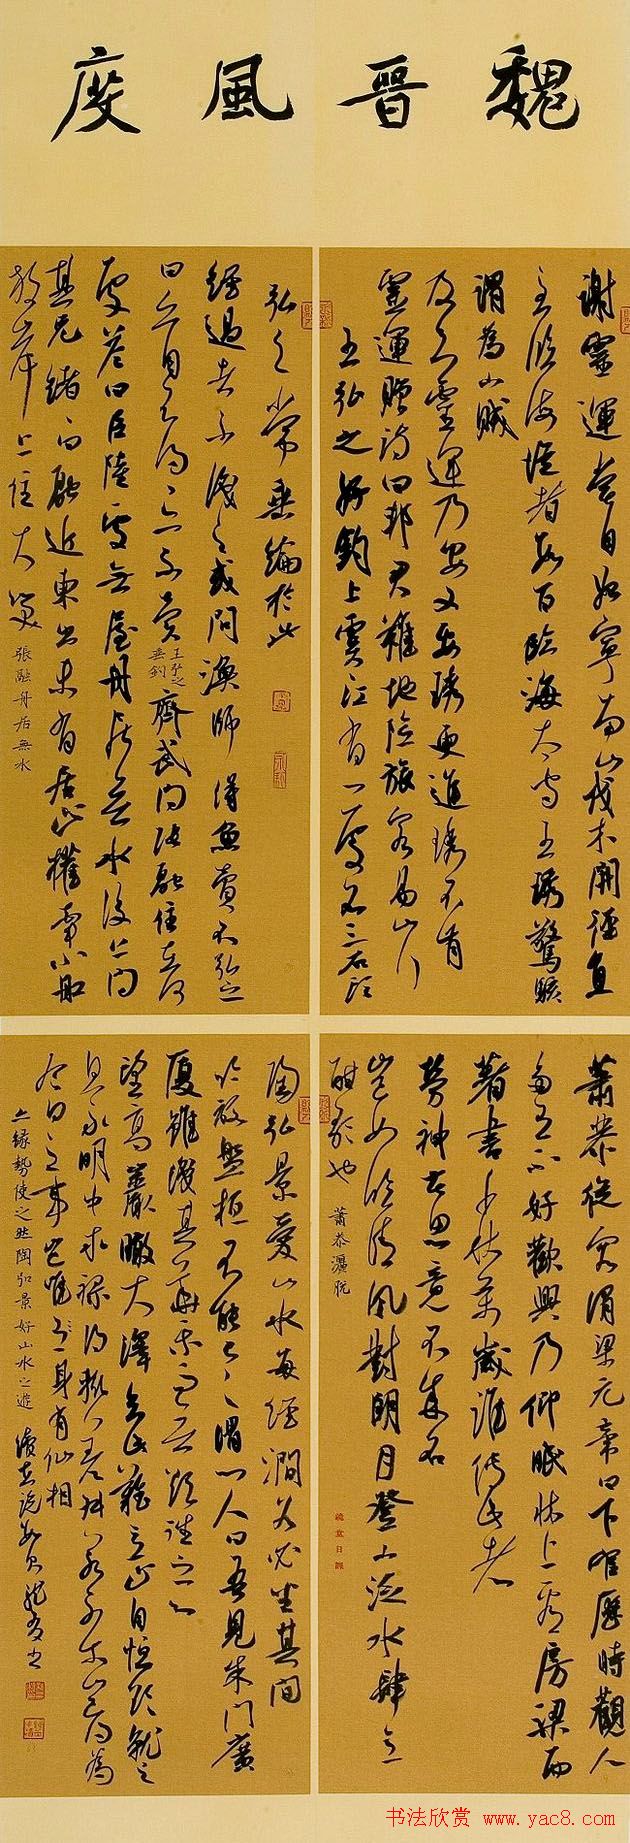 魏晋風度
謝靈運嘗自始寧南山伐木開徑直
至臨海從者數百臨海太守王琇驚駭
謂為山賊
及知靈運乃安又要琇更進琇不肯
靈運贈詩曰邦君難地險旅客易山行
王弘之好釣上虞江有一處名三石頭
弘之常垂綸於此
經過者不識之或問漁師得魚賣不弘之
曰亦自不得得亦不賣 王弘之垂釣 齊武問張融住在何
處答曰臣陸處無屋舟居無水後上問
其兄緒曰融近東出未有居止權牽小船
於岸上住大笑 張融舟居無水
蕭恭從容謂梁元帝曰下官歷時觀人
多有不好歡興乃仰眠床上看房梁而
著書千秋萬歲誰傳此者
勞神苦思竟不成名
豈如臨清風對明月登山泛水肆意
酣歌也 蕭恭灑脱
陶弘景愛山水每經澗谷必坐其間
吟詠盤桓不能已謂門人曰吾見朱門廣
廈雖識其華樂而無欲往之心
望高巖瞰大澤知此難立止自恒欲就之
且永明中求祿得輒差舛若不爾豈得為
今日之事豈唯身有仙相
亦緣勢使之然陶弘景好山水之遊
书法欣赏 www.yac8.com